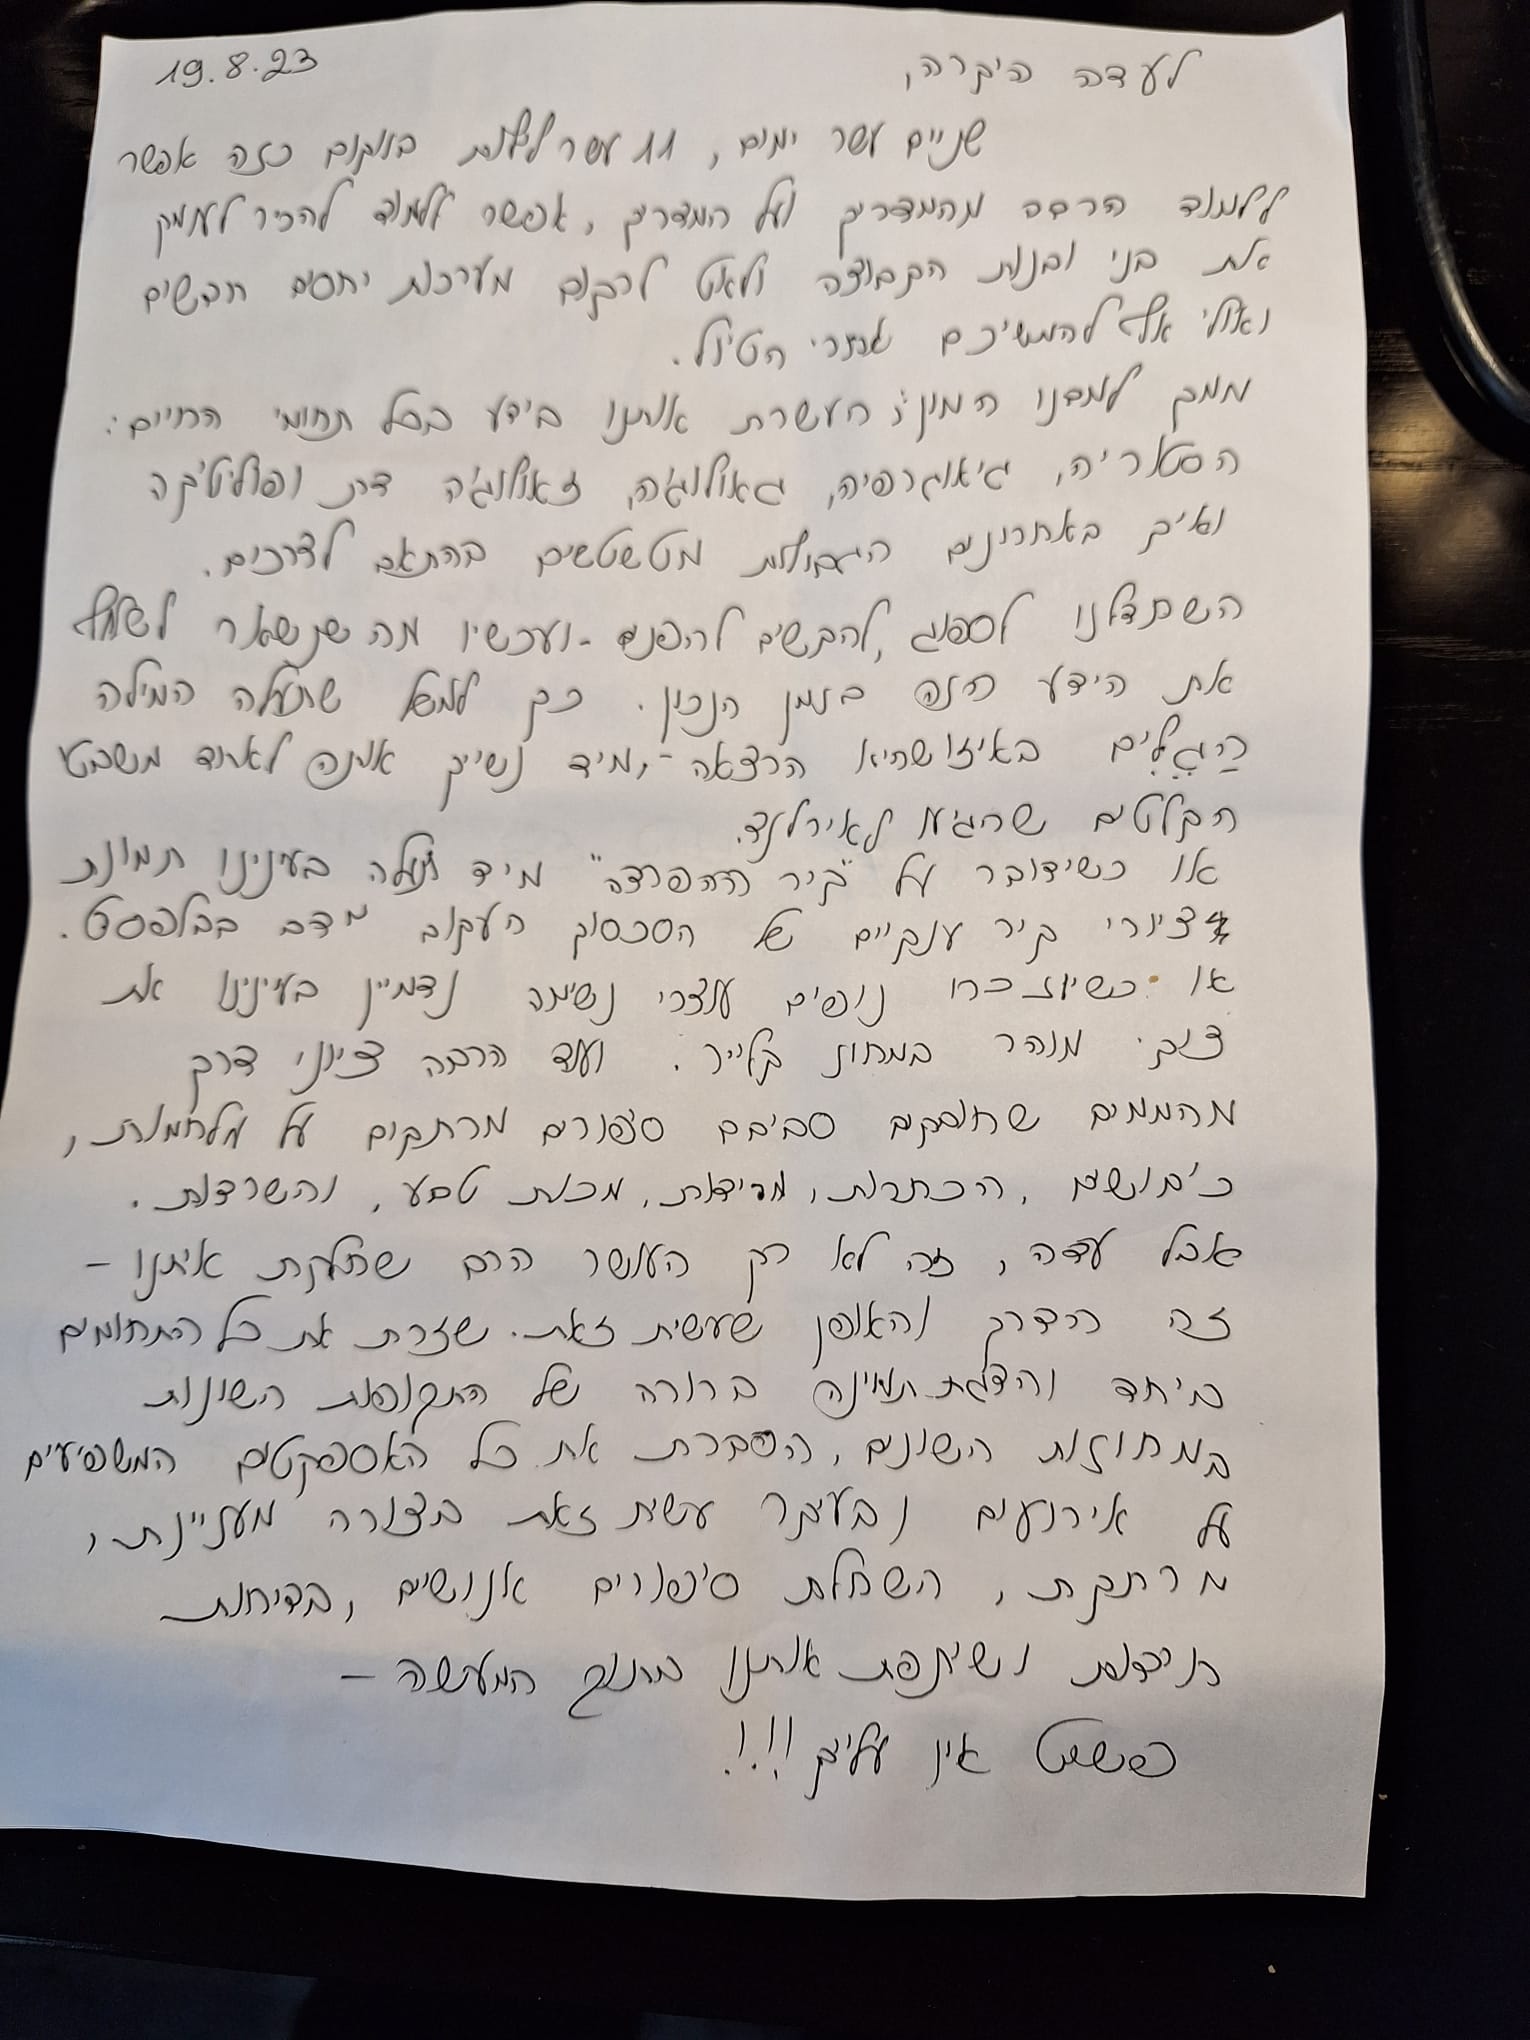 19.8.23
לעדה היקרה,
שניים עשר ימים, 11 עשר לילות במקום כזה אפשר
ללמוד הרבה מהמדריך ועל המדריך, אפשר ללמוד להכיר לעומק
את בני ובנות הקבוצה ולאט לרקום מערכות יחסים חדשים
ואולי אף להמשיכם אחרי הטיול.
ממך למדנו המון: העשרת אותנו בידע בכל תחומי החיים:
הסטוריה, גיאוגרפיה, גאולוגיה, זאולוגיה דת ופוליטיקה
ואיך באחרונים הגבולות מטשטשים בהתאם לצרכים.
השתדלנו לספוג, להקשיב להפנים - ועכשיו מה שנשאר לשלוף
את הידע הזה בזמן הנכון. כך למשל שתעלה המילה
הַגָלִים באיזושהיא הרצאה - מיד נשייך אותה לאחד משבט
הקלטים שהגיעו לאירלנד.
או כשידובר על "קיר ההפרדה" מיד תעלה בעינינו תמונת
ציורי קיר ענקיים של הסכסוך העקוב מדם בבלפסט.
או כשיוזכרו נופים עוצרי נשימה נדמיין בעינינו את
צוקי מוהר במחוז קלייר. ועוד הרבה ציוני דרך
מהממים שחובקים סביבם סיפורים מרתקים על מלחמות,
כיבושים, הכתרות, מרידות, מכות טבע, והשרדות.
אבל עדה, זה לא רק העושר הרב שחלקת איתנו -
זה הדרך והאופן שעשית זאת. שזרת את כל התחומים
ביחד והצגת תמונה ברורה של התקופות השונות
במחוזות השונים, הסברת את כל האספקטים המשפיעים
על אירועים ובעיקר עשית זאת בצורה מעניינת,
מרתקת, השחלת סיפורים אנושיים, בדיחות
חידות ושיתפת אותנו בתוך המעשה -
פשוט אין עלייך!!!